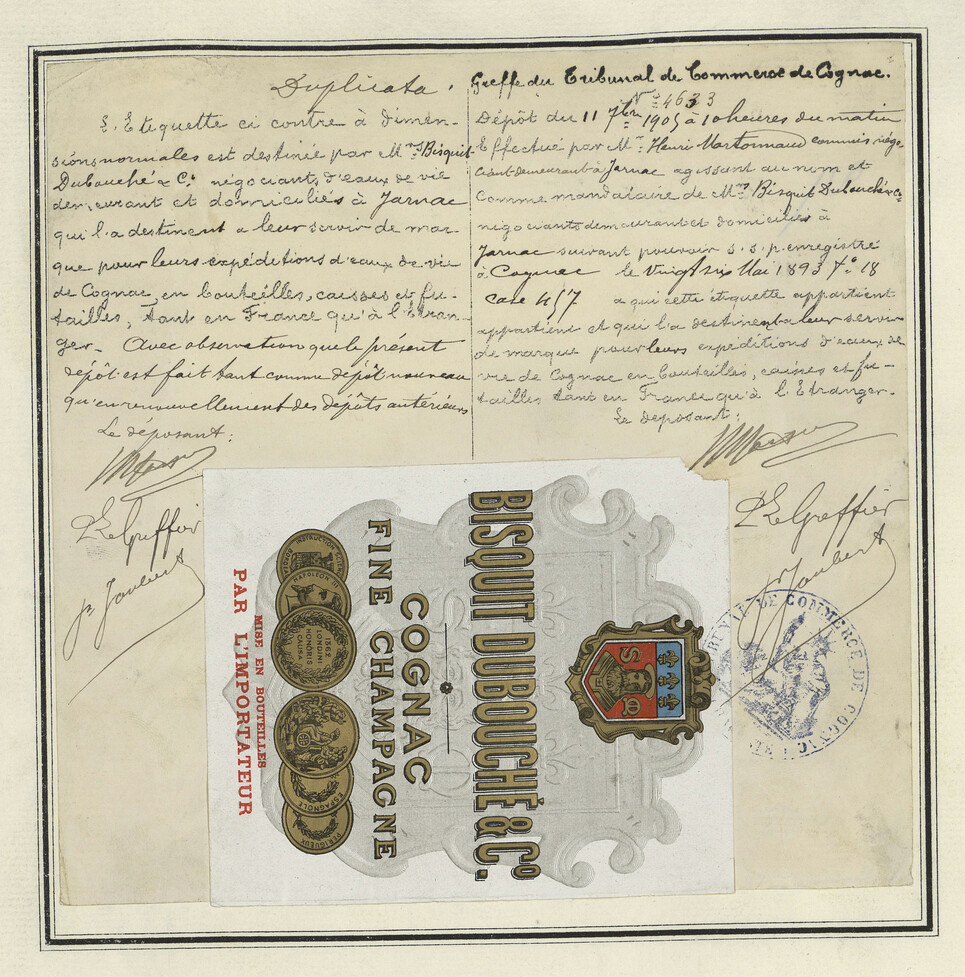 Duplicata.
L'Etiquette ci contre à dimen-
sions normales est destinée par Mrs Bisquit
Dubouché & Co. négociants d'eaux de vie
demeurant et domiciliés à Jarnac
qui l'a destinent a leur servir de mar-
que pour leurs expéditions d'eaux de vie
de Cognac, en bouteilles, caisses et fu-
tailles, tant en France qu'à l'étran-
ger. Avec observation que le présent
dépôt est fait tant comme dépôt nouveau
qu'en renouvellement des dépôts antérieurs
Le déposant:
P Le Greffier
Joubert
Greffe du Tribunal de Commerce de Cognac.
No 4633
Dépôt du 11 7bre 1905 à 10 heures du matin
Effectué par Mr. Henri commis négo-
ciant demeurant à Jarnac agissant au nom et
comme mandataire de Mrs Bisquit Dubouché & Co
négociants demeurant et domiciliés à
Jarnac suivant pouvoir s.s.p. enregistré
à Cognac le vingt six Mai 1893 fo 18
case 457 a qui cette étiquette appartient
appartient et qui l'a destinent a leur servir
de marque pour leurs expéditions d'eaux de
vie de Cognac en bouteilles, caisses et fu-
tailles tant en France qu'à l'Etranger.
Le deposant:
P Le Greffier
Joubert
BISQUIT DUBOUCHÉ & Co.
COGNAC
FINE CHAMPAGNE
NAPOLEON III
1862
LONDINI
HONORIS
CAUSA
ESPAGNOLE
PÉRIGUEUX
MISE EN BOUTEILLES
PAR L'IMPORTATEUR
DE COMMERCE DE COGNAC